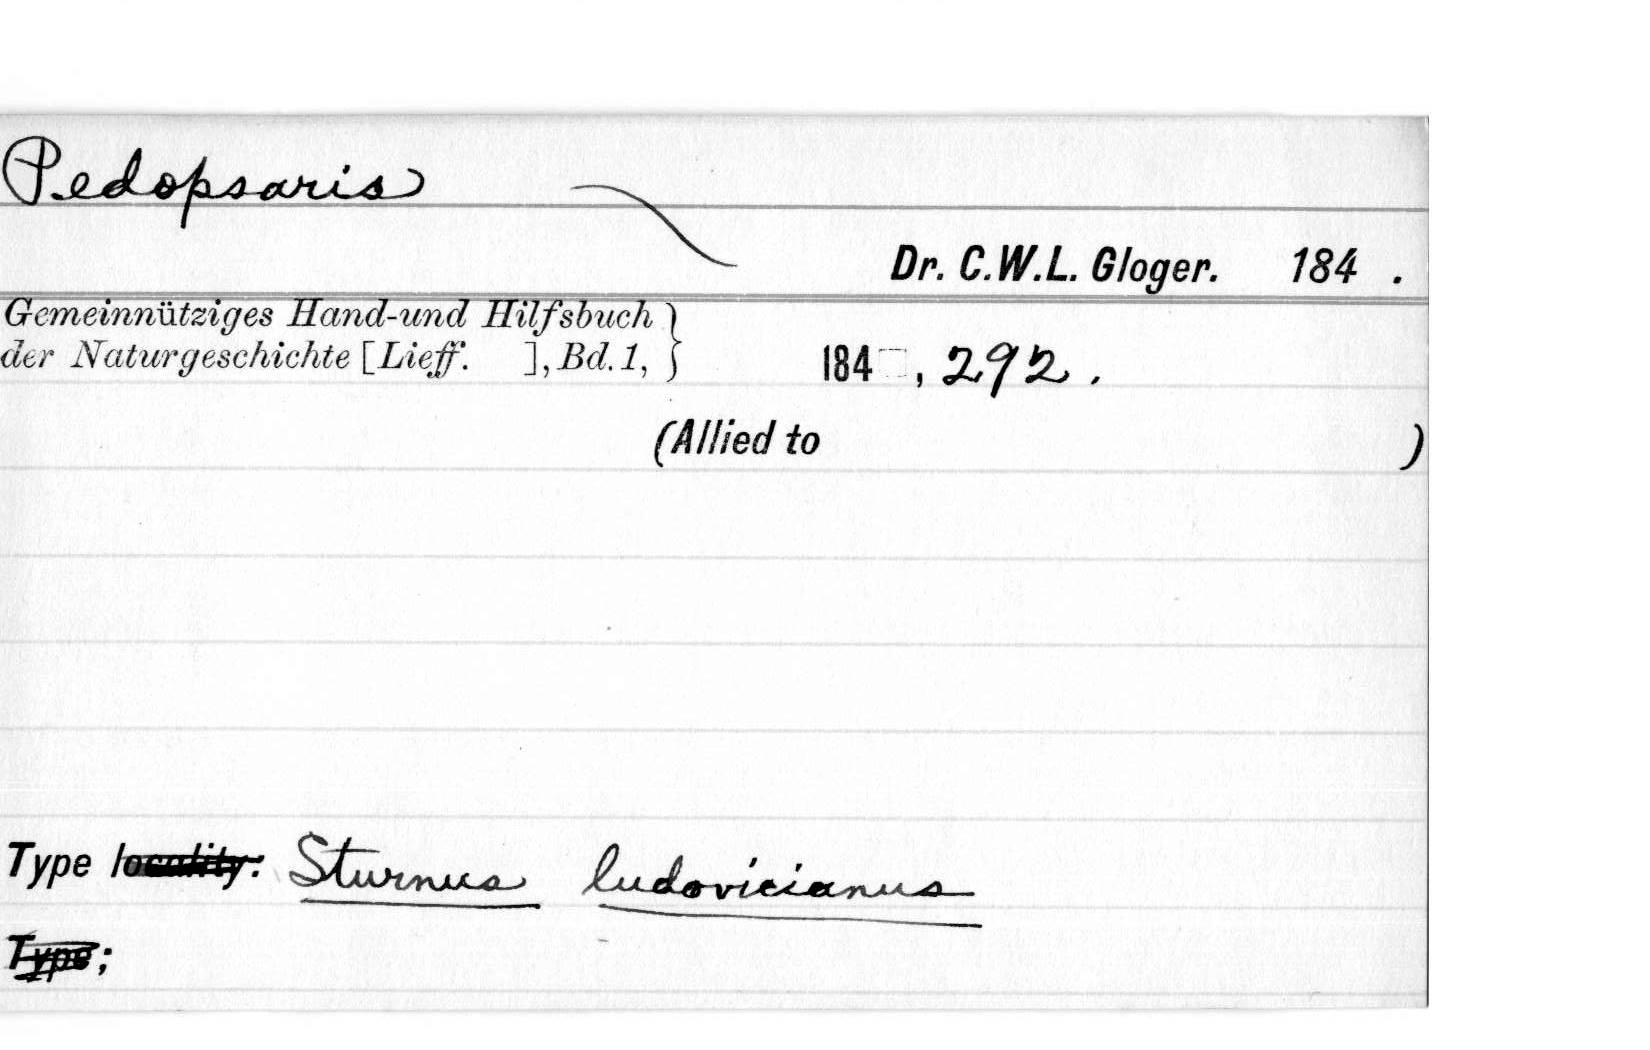 Pedopsaris
Dr. C.W.L. Gloger. 184 .
Gemeinnütziges Hand-und Hilfsbuch
der Naturgeschichte [Lieff. ], Bd. 1, } 184 , 292 .
(Allied to )
Type locality: Sturnus ludovicianus
Type;